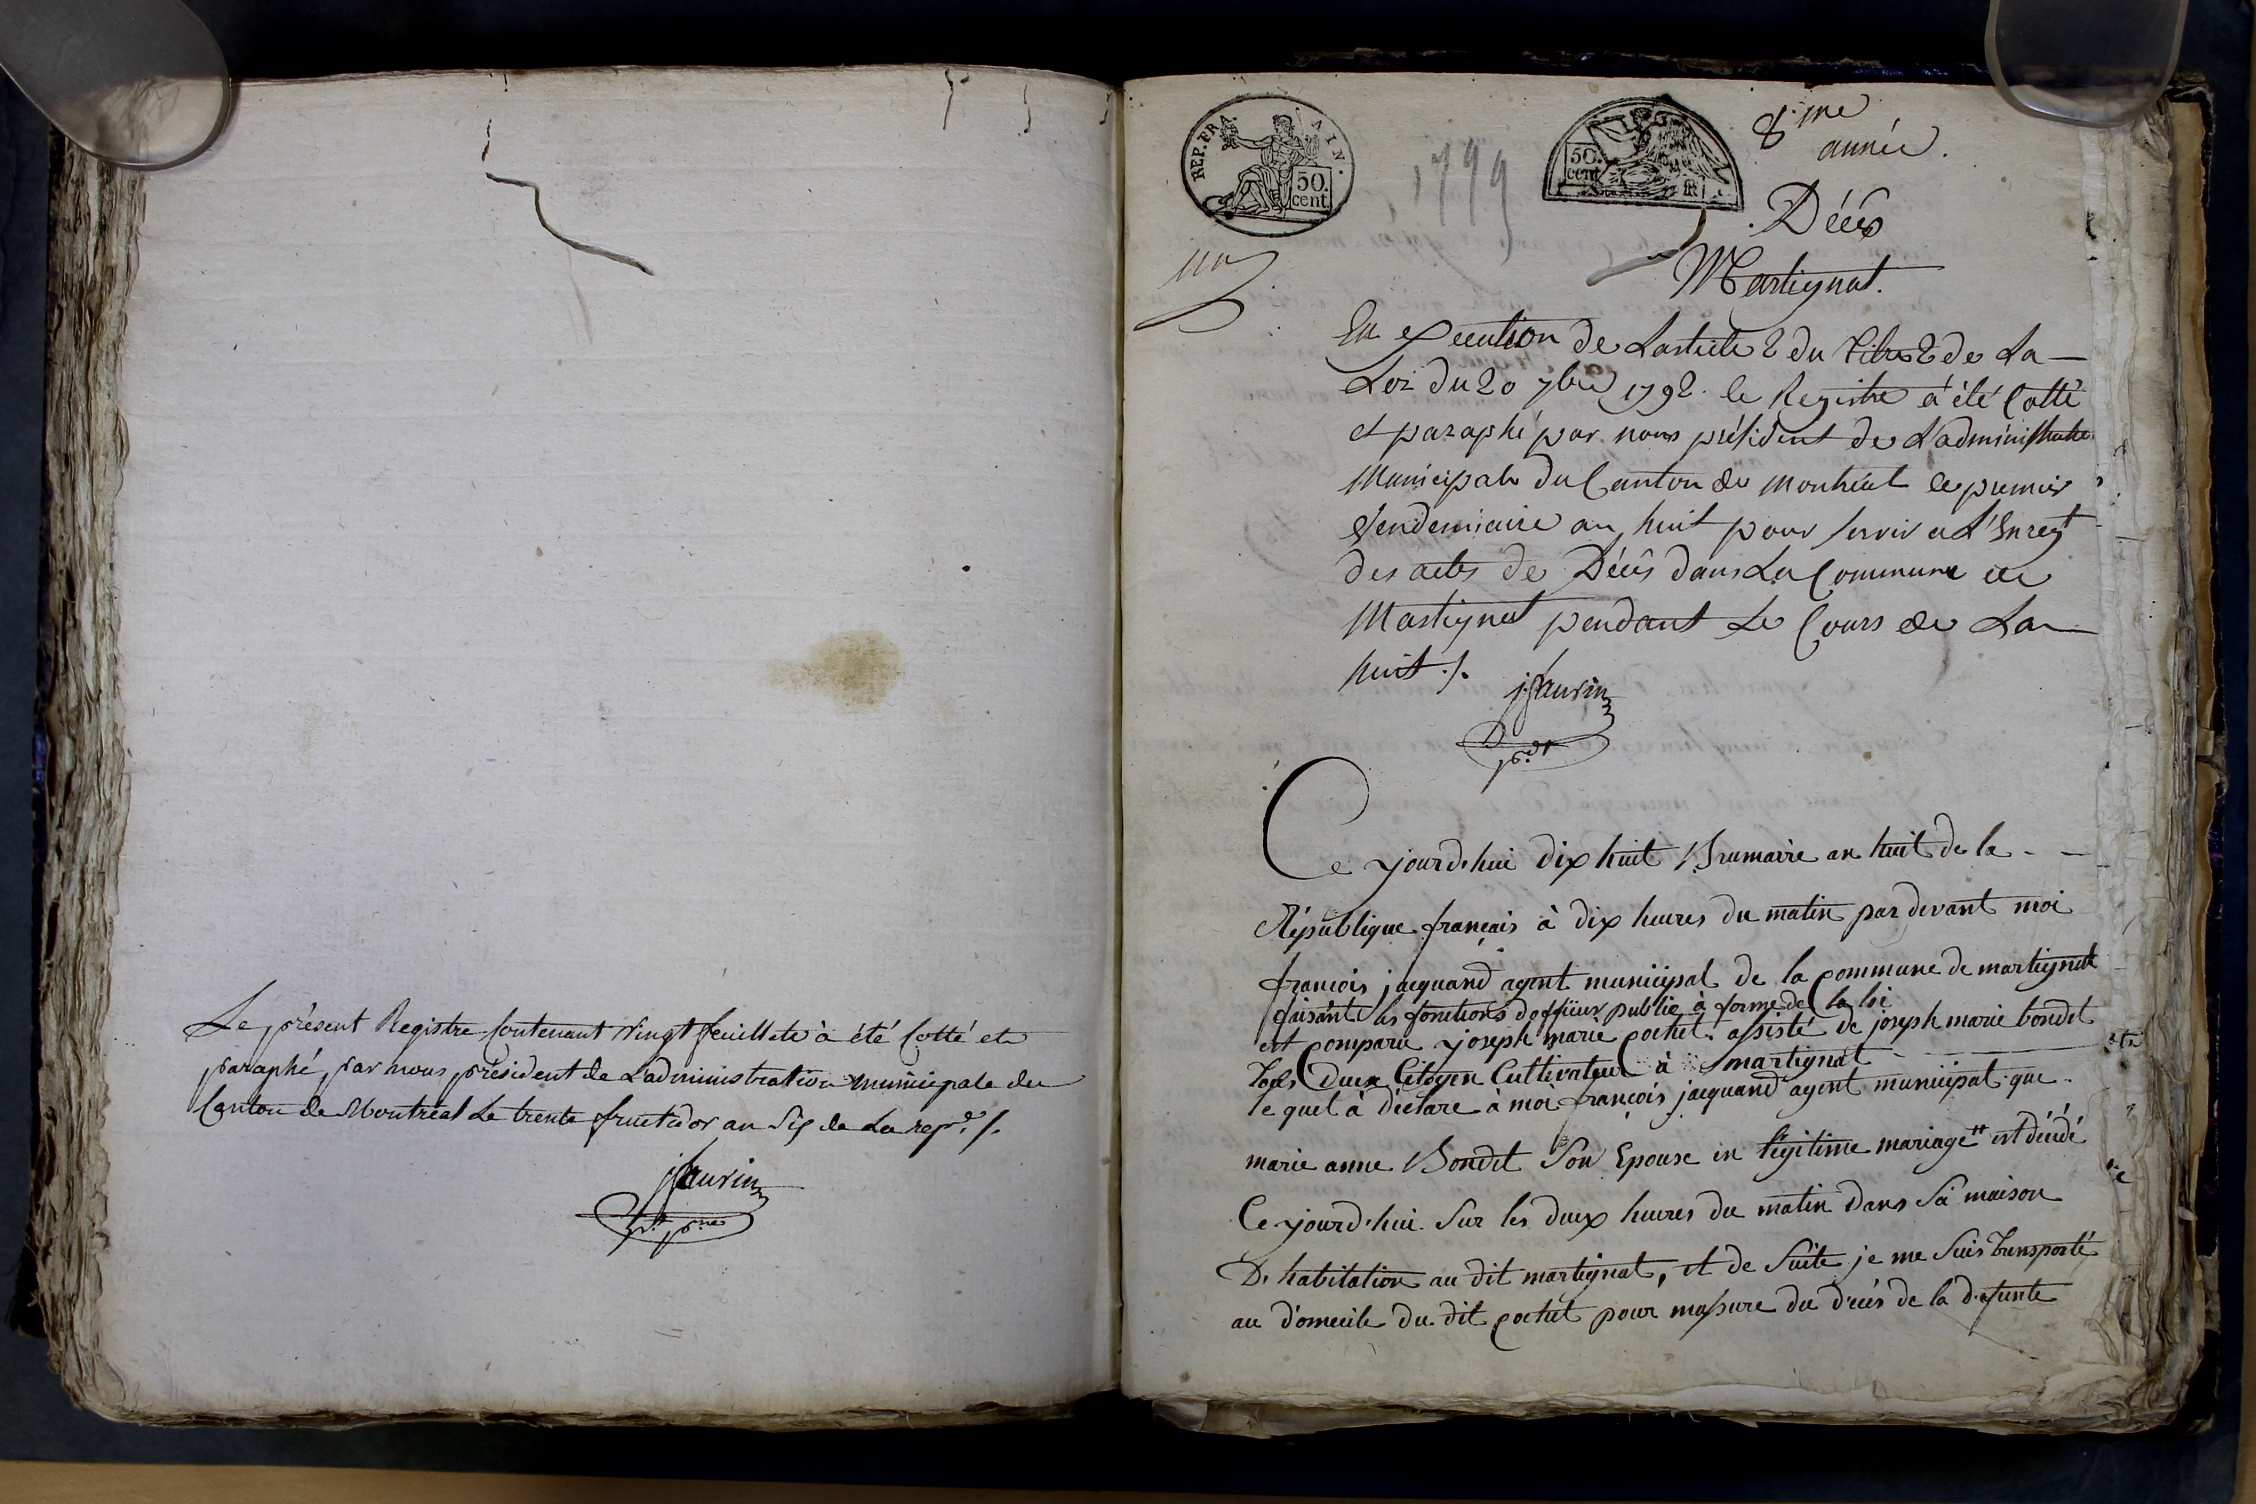 Le présent Registre Contenant vingt feuillets à été Cotté et
paraphé, par nous président de L'administration municipale du
Canton de Montréal Le trente fructidor an Six de La rep.e /.
jSaurin
REP. FRA. 50. cent.
1799
50. cent
8.me
année.
Décès
Martignat.
En execution de Larticle 2 du titre 2 de La
Loi du 20 7bre 1792. le Registre a été Cotté
et paraphé par nous président de L'administration
Municipale du Canton de Montréal le premier
Vendemiaire an huit pour servir a L'Enregt
des actes de Décès dans La Commune de
Martignat pendant Le Cours de Lan
huit ./.
jSaurin
pdt
Ce jourd'hui dix huit Brumaire an huit de la - -
République français à dix heures du matin par devant moi
françois jacquand agent municipal de la commune de martignat
faisante les fonctions dofficier public à forme de la loi
est comparu joseph marie cochet assisté de joseph marie bondet
Deux Citoyen Cultivateur à martignat
le quel à déclare à moi françois jacquand agent municipal que
marie anne Bondet Son Epouse in légitime mariage est décédé
Ce jourd'hui Sur les deux heures du matin dans Sa maison
D'habitation au dit martignat, et de Suite je me Suis transporté
au domicile du dit cochet pour massure du décés de la defunte